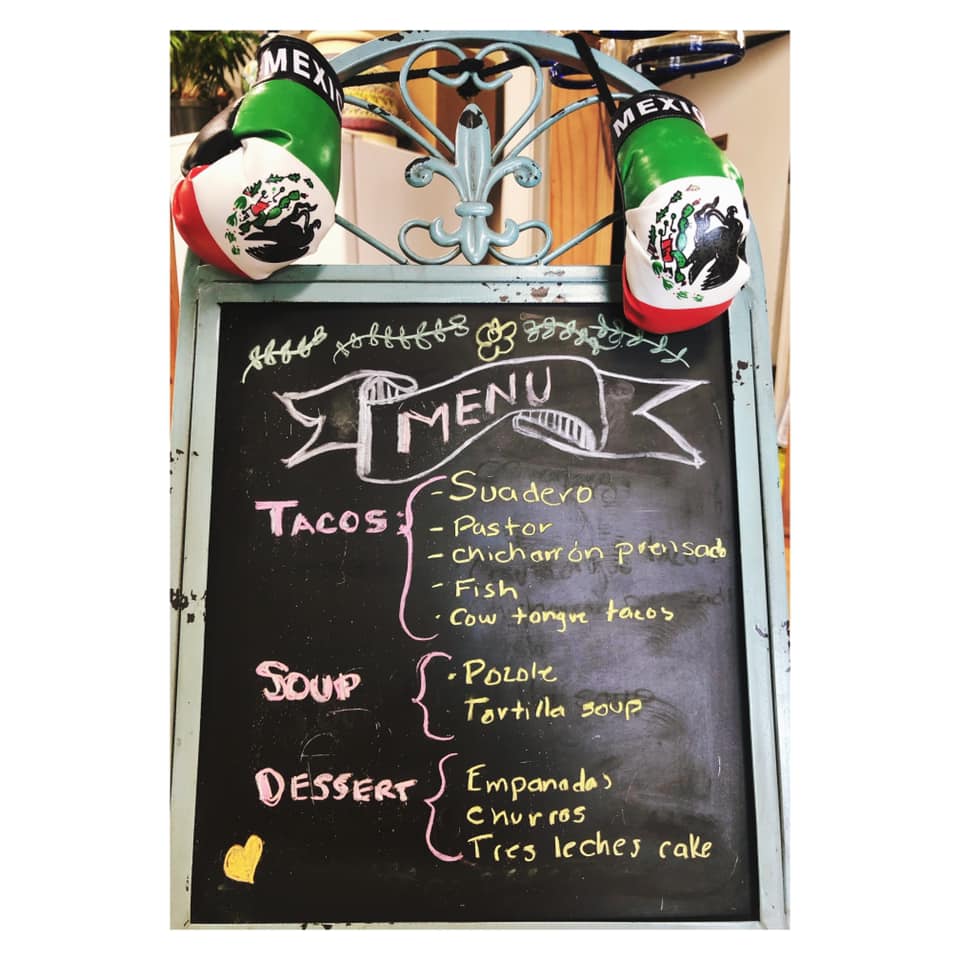 MEXIC
MEXIC
MENU
TACOS:
- Suadero
- Pastor
- chicharrón prensado
- Fish
· Cow tongue tacos
SOUP
· Pozole
Tortilla soup
DESSERT
Empanadas
churros
Tres leches cake